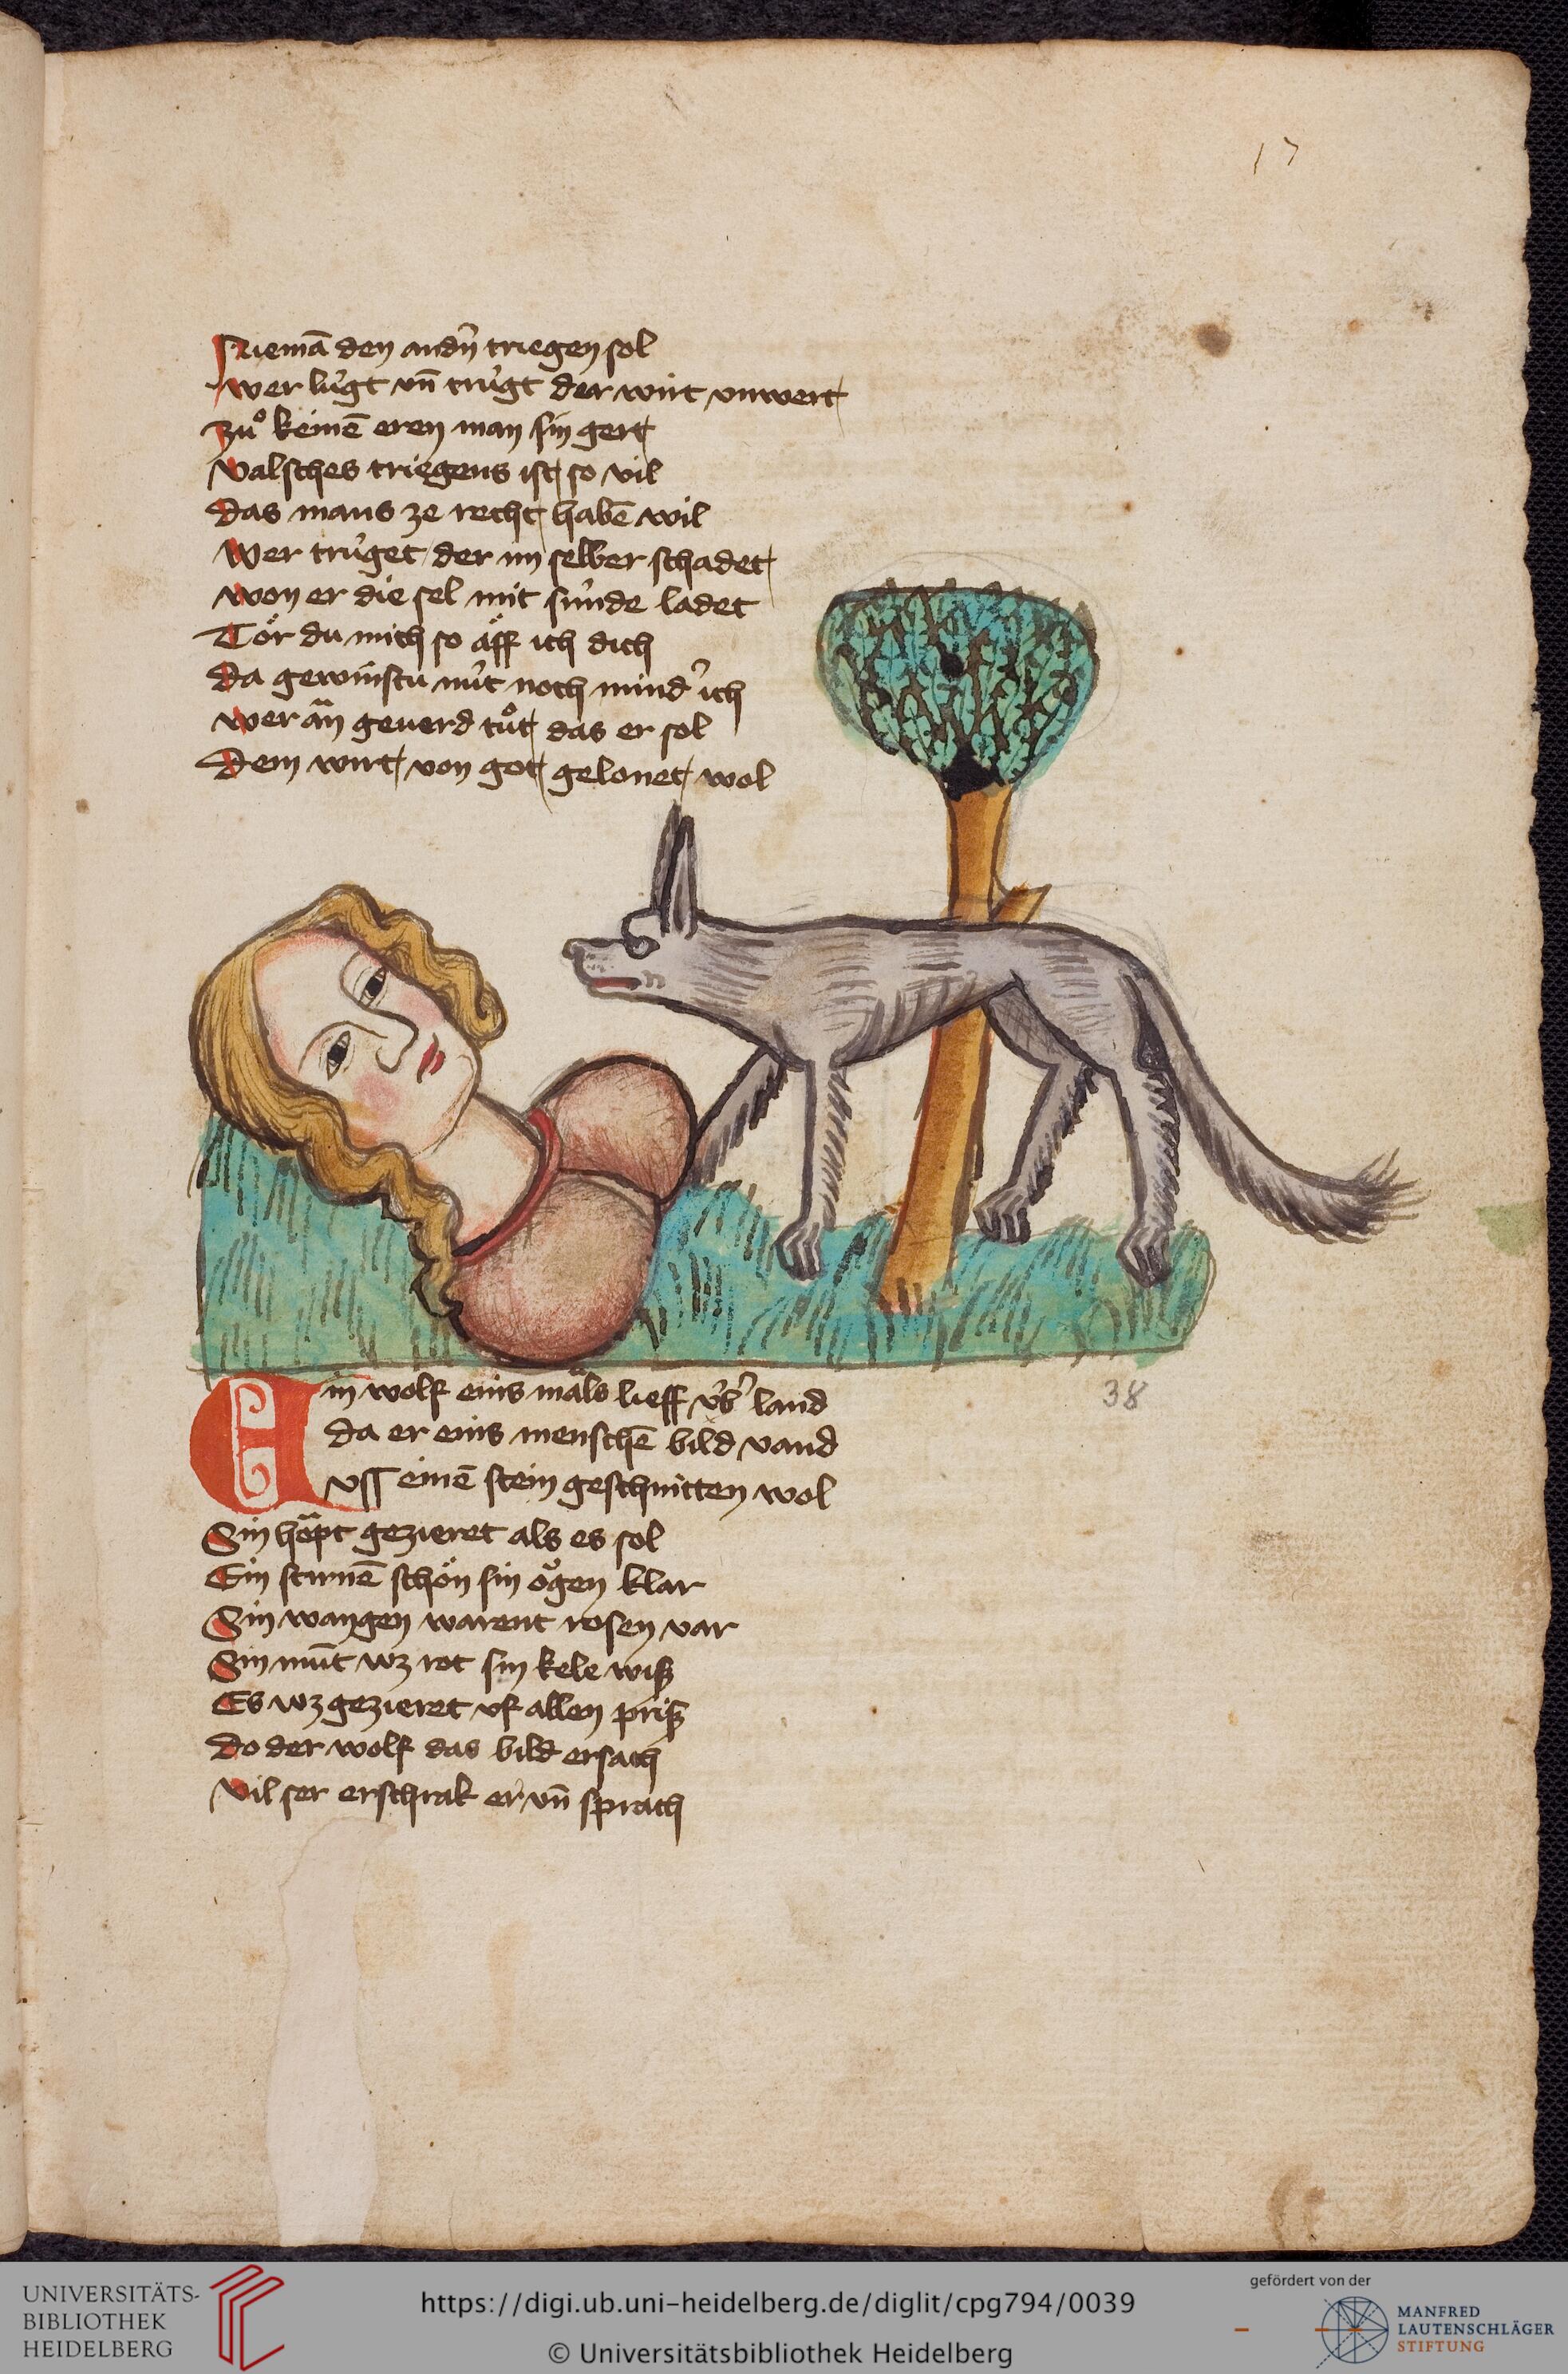 17
Niemā den andn̄ triegen sol
wer lúgt vn̄ trúgt der wirt vnwert
zuͦ keinē eren man sin gert
valsches triegens ist so vil
das mans ze recht habē wil
wer trúget der im selber schadet
won er die sel mit súnde ladet
Tör du mich so äff ich dich
da gewinstu nút noch mind' ich
wer ān geuerd tuͦt das er sol
Dem wirt von got gelonet wol
Ein wolf einsmåls lieff v́b' land
da er eins menschē bild vand
vss einē stein geschnitten wol
Sin håpt gezieret als es sol
Ein stirnē schön sin ögen klar
Sin wangen warent rosen var
Sin mūt wz rot sin kele wiß
Es wz gezieret vf allen priß
Do der wolf das bild ersach
vil ser erschrak er vn̄ sprach
38
UNIVERSITÄTS-
BIBLIOTHEK
HEIDELBERG
https://digi.ub.uni-heidelberg.de/diglit/cpg794/0039
© Universitätsbibliothek Heidelberg
gefördert von der
MANFRED
LAUTENSCHLÄGER
STIFTUNG